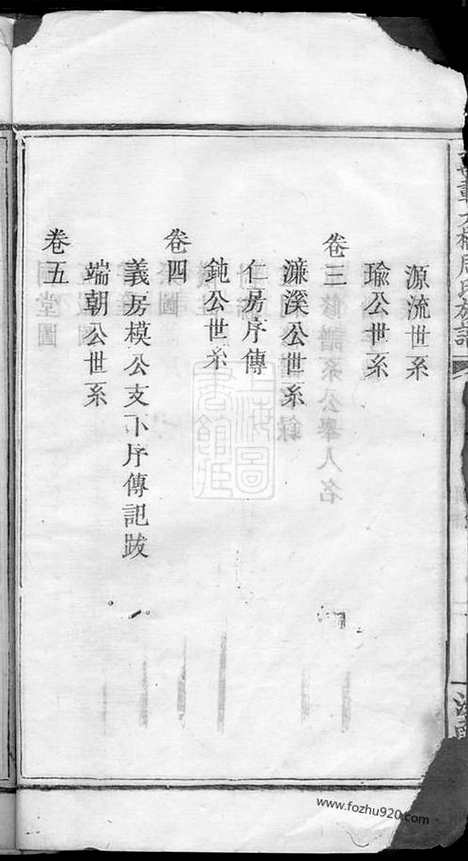 源流世系
瑜公世系
卷三
濂溪公世系
仁房序傳
鈍公世系
卷四
義房模公支下序傳記跋
端朝公世系
卷五
上海圖書館藏
www.fozhu920.com